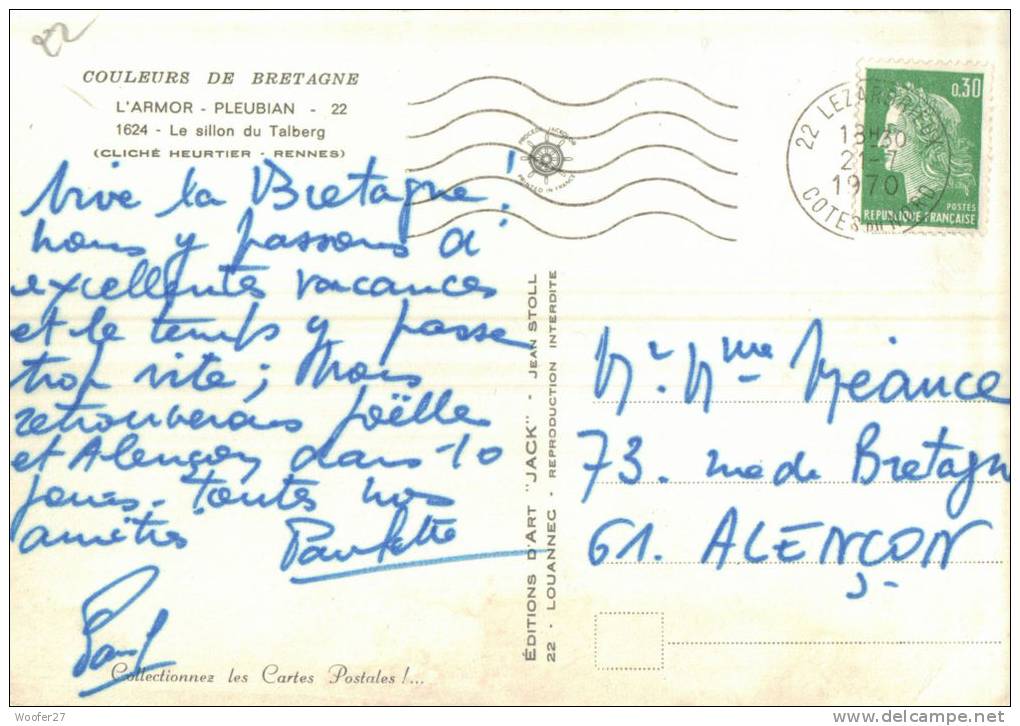 22
COULEURS DE BRETAGNE
L'ARMOR - PLEUBIAN - 22
1624 - Le sillon du Talberg
(CLICHÉ HEURTIER - RENNES)
Vive la Bretagne !
nous y passons d'
excellentes vacances
et le temps y passe
trop vite ; Nous
retrouverons Joëlle
et Alençon dans 10
jours. Toutes nos
amitiés Paulette
Paul
Collectionnez les Cartes Postales !...
PROCÉDÉ JACKCOLOR
PRINTED IN FRANCE
ÉDITIONS D'ART "JACK" - JEAN STOLL
22 - LOUANNEC - REPRODUCTION INTERDITE
22 LEZARDRIEUX
18H30
21-7
1970
COTES DU NORD
0,30
POSTES
REPUBLIQUE FRANÇAISE
Mr. Mme Méance
73. rue de Bretagn
61. ALENÇON
Woofer27
www.delcampe.net